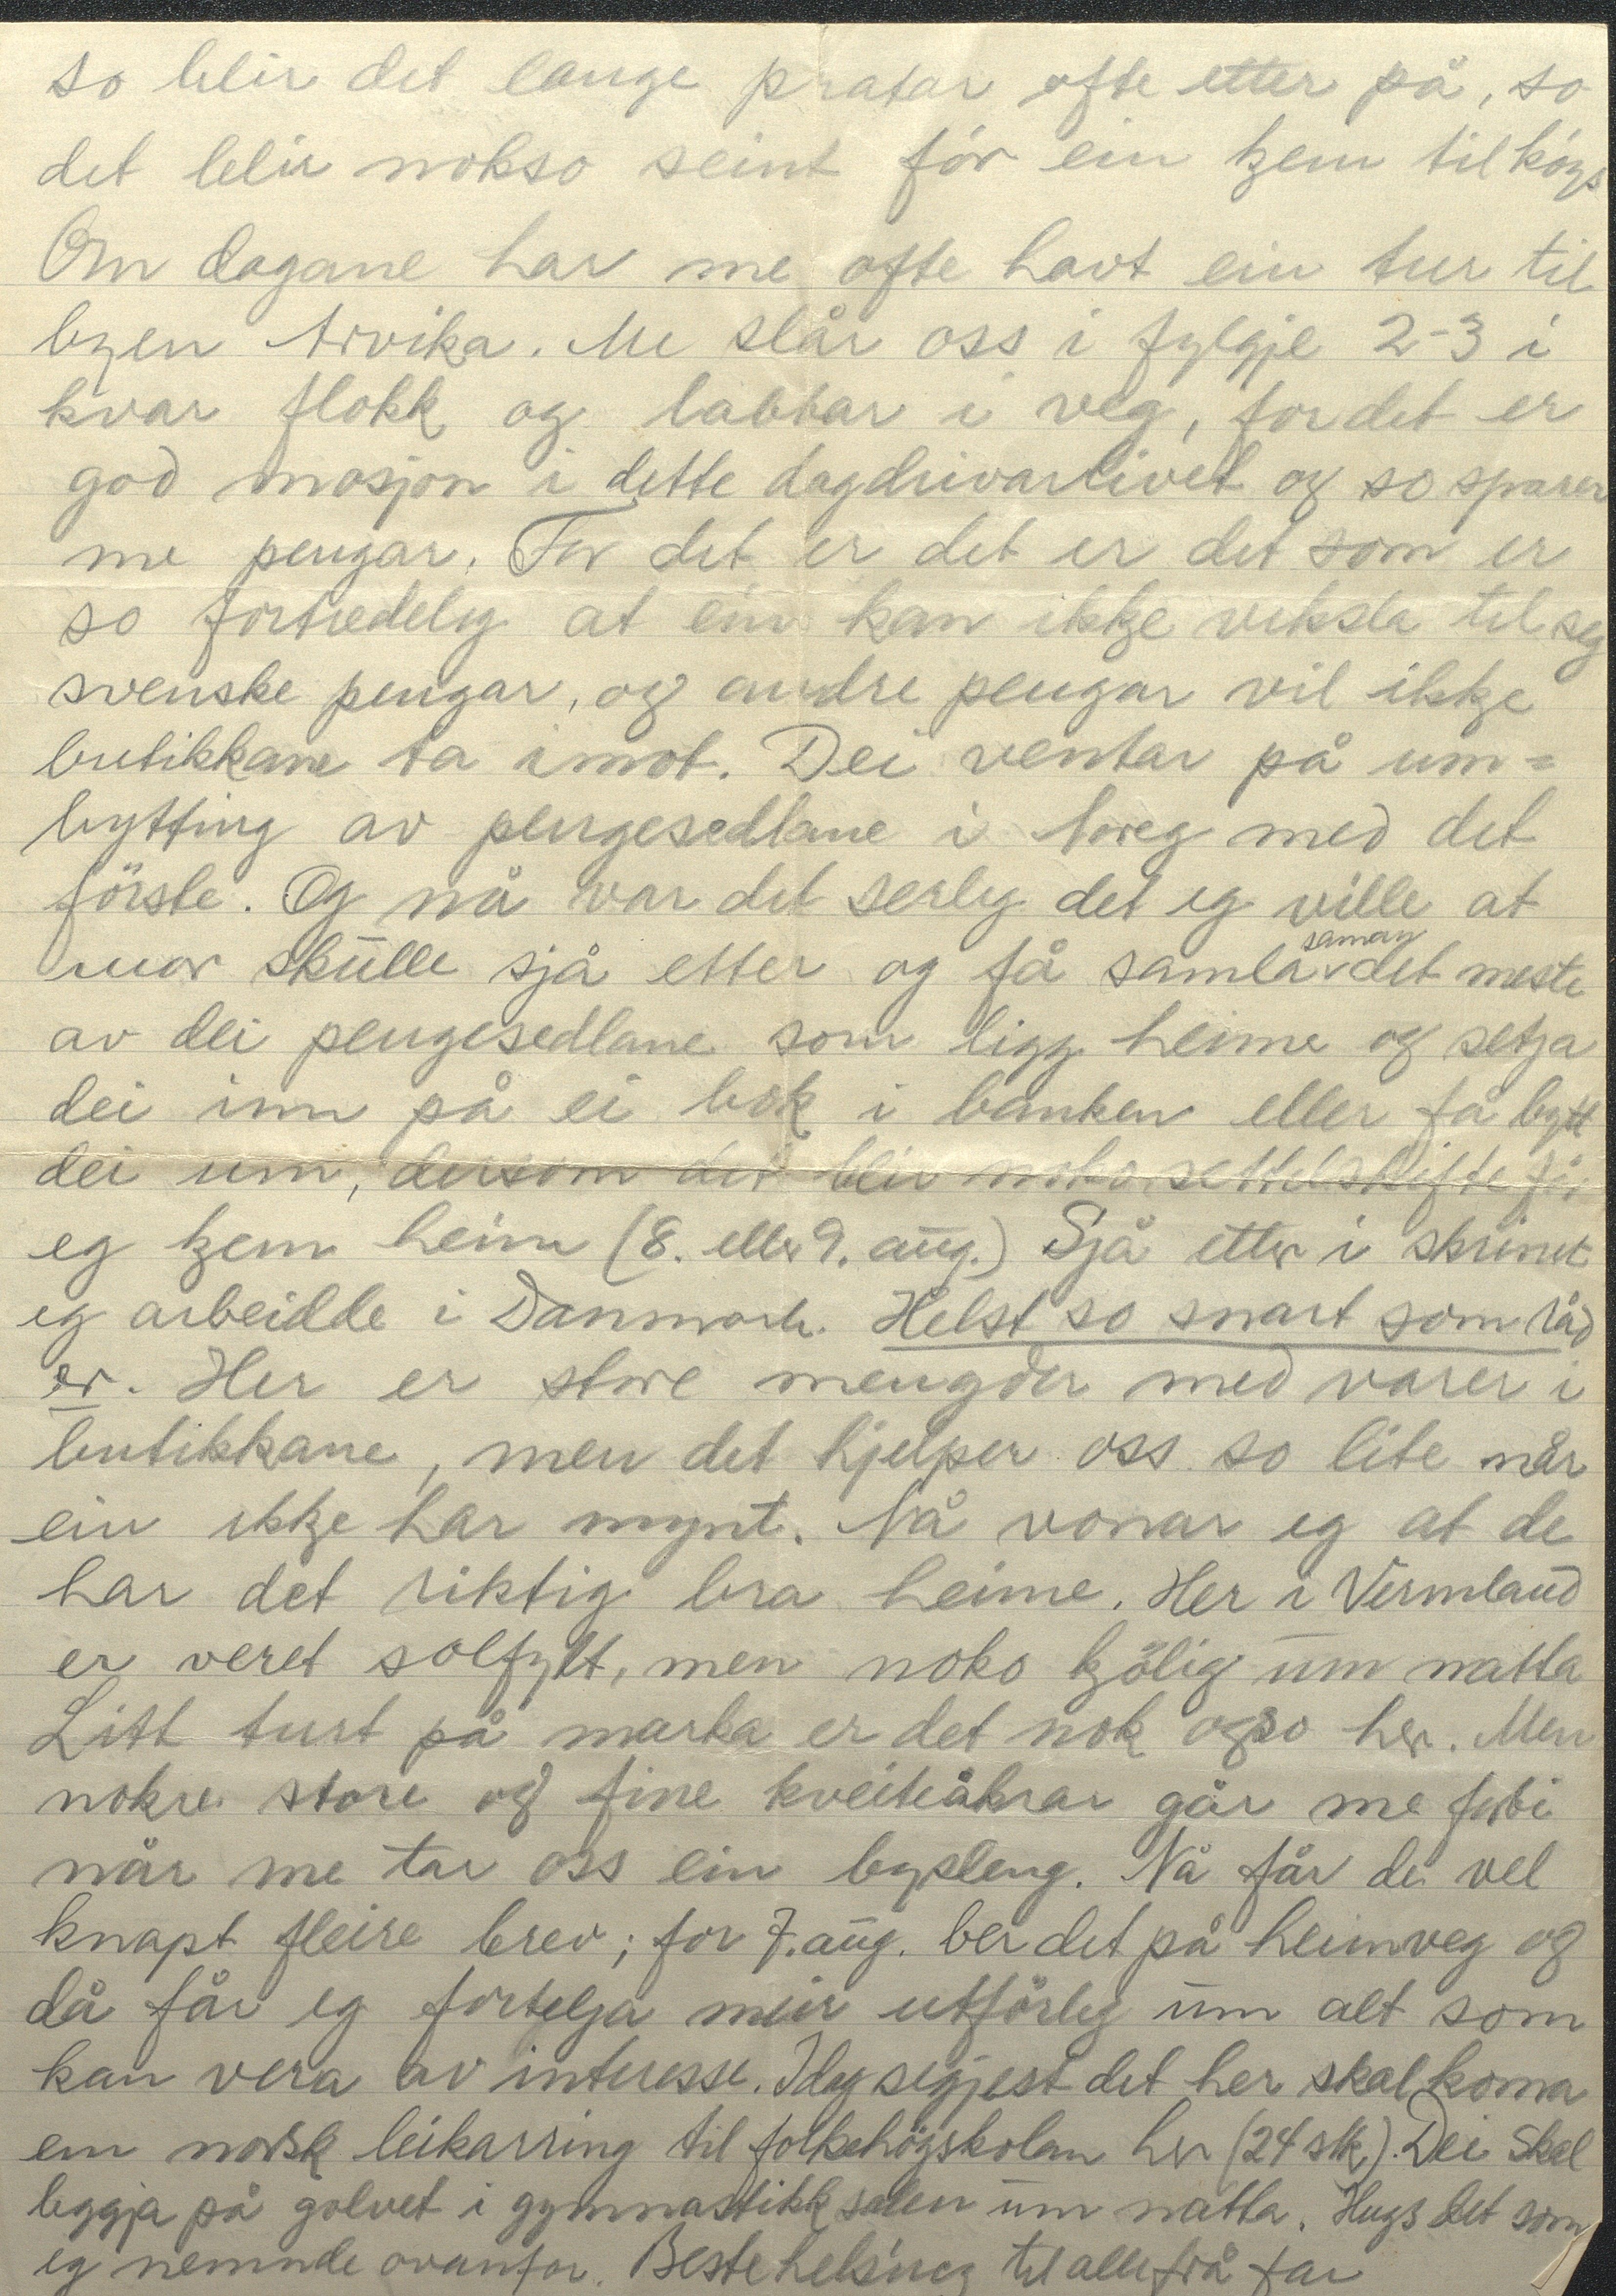 so blir det lange pratar ofte etter på, so
det blir nokso seint för ein kjem til köys
Om dagane har me ofte havt ein tur til
byen Arvika. Me slår oss i fylgje 2-3 i
kvar flokk og labbar i veg, for det er
god mosjon i dette dagdrivarlivet og so sparer
me pengar. For det er det er det som er
so fortredeleg at ein kan ikkje veksla til seg
svenske pengar, og andre pengar vil ikkje
butikkane ta imot. Dei ventar på um=
bytting av pengesedlane i Noreg med det
förste. Og nå var det serleg det eg ville at
mor skulle sjå etter og få samla saman det meste
av dei pengesedlane som ligg heime og setja
dei inn på ei bok i banken eller få bytt
dei um, dersom det blir noko settelskifte för
eg kjem heim (8. eller 9. aug.) Sjå etter i skrinet
eg arbeidde i Danmark. Helst so snart som råd
er. Her er store mengder med varer i
butikkane, men det hjelper oss so lite når
ein ikkje har mynt. Nå vonar eg at de
har det riktig bra heime. Her i Vermland
er veret solfylt, men noko kjölig um natta
Litt turt på marka er det nok ogso her. Men
nokre store og fine kveiteåkrar går me forbi
når me tar oss ein bysleng. Nå får de vel
knapt fleire brev; for 7. aug. ber det på heimveg og
då får eg fortelja meir utförleg um alt som
kan vera av interesse. Idag segjest det her skal koma
ein norsk leikarring til folkehögskolan her (24 stk). Dei skal
leggja på golvet i gymnastikksalen um natta. Hugs det som
eg nemnde ovanfor. Beste helsing til alle frå far